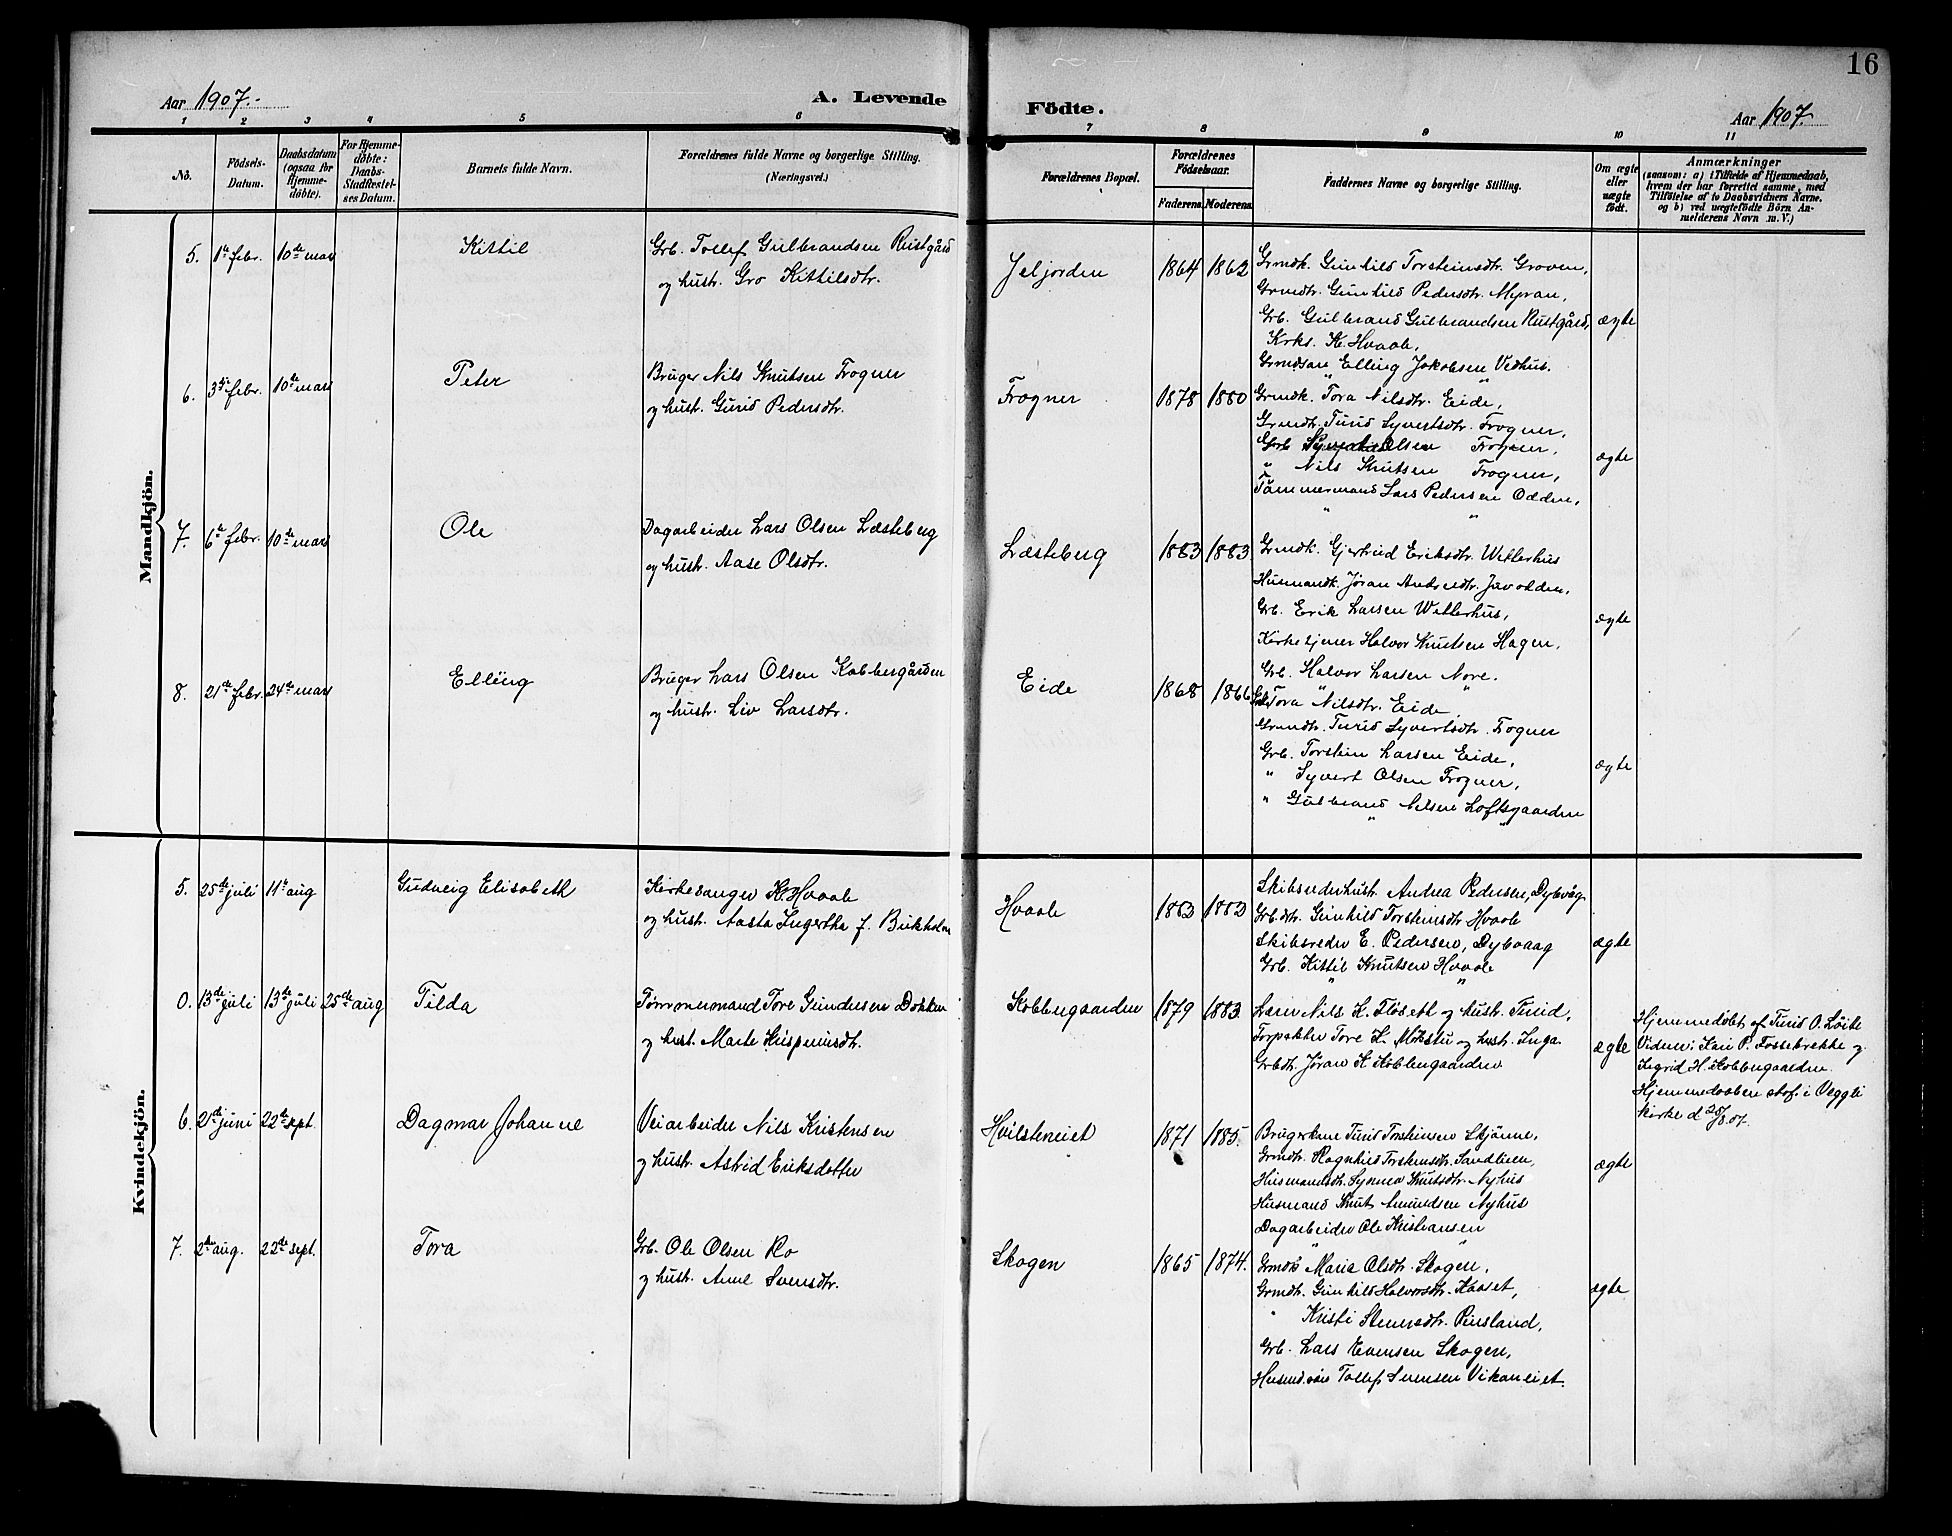 16
Aar 1907.
A. Levende
Födte.
Aar 1907.
1 2 3 4 5 6 7 8 9 10 11
No.
Födsels-
Datum.
Daabsdatum
(ogsaa for
Hjemme-
döbte).
For Hjemme-
döbte:
Daabs-
Stadfæstel-
ses Datum.
Barnets fulde Navn.
Forældrenes fulde Navne og borgerlige Stilling.
(Næringsvei.)
Forældrenes Bopæl.
Forældrenes
Födselsaar.
Faderens. Moderens.
Faddernes Navne og borgerlige Stilling.
Om ægte
eller
uægte
födt.
Anmærkninger
(saasom: a) i Tilfælde af Hjemmedaab,
hvem der har forrettet samme, med
Tilföielse af to Daabsvidners Navne,
og b) ved uægtefödte Börn An-
melderens Navn m. V.)
Mandkjön.
5. 1ste febr. 10de mars Kittil
Grb. Tollef Gulbrandsen Rustgård
og hustr. Gro Kittilsdtr.
Jeljorden 1864 1862
Grmdk. Gunhild Torsteinsdtr. Groven,
Grmdtr. Gunhild Pedersdtr. Myran,
Grb. Gulbrand Gulbrandsen Rustgård,
Krks. K. Hvaale,
Grmdsøn Elling Jakobsen Vedhus.
ægte
6. 3die febr. 10de mars Peter
Bruger Nils Knutsen Frogner
og hust. Gurid Pedersdtr.
Frogner 1878 1880
Grmdk. Tora Nilsdtr. Eide,
Grmdtr. Turid Syvertsdtr. Frogner,
Grb. Syvert Olsen Frogner,
" Nils Knutsen Frogner,
Tømmermand Lars Pedersen Odden,
ægte
7. 6te febr. 10de mars Ole
Dagarbeider Lars Olsen Læsteberg
og hustr. Aase Olsdtr.
Læsteberg 1883 1883
Grmdk. Gjertrud Eriksdtr. Wetterhus
Husmandk. Jøran Andersdtr.
Grb. Erik Larsen Wetterhus,
Kirketjener Halvor Knutsen Hagen,
Grb. Halvor Larsen Nore.
ægte
8. 21de febr. 24de mars Elling
Bruger Lars Olsen Kobbergården
og hustr. Liv Larsdtr.
Eide 1868 1866
Tora Nilsdtr. Eide
Grmdtr. Turid Syvertsdtr. Frogner
Grb. Torstein Larsen Eide,
" Syvert Olsen Frogner,
" Gulbrand Nilsen Loftsgaarden
ægte
Kvindekjön.
5. 25de juli 11te aug Gudveig Elisabeth
Kirkesanger K. Hvaale
og hustr. Aasta Ingertha f. Birkholm
Hvaale 1883 1882
Skibsrederhustr. Andrea Pedersen, Dybvåg
Grb.dtr. Gunhild Torsteinsdtr Hvaale
Skibsreder E. Pedersen, Dybvaag
Grb. Kittil Knutsen Hvaale
ægte
0. 13de juli 13de juli 25de aug Tilda
Tømmermand Tore Gundersen Dokken
og hust. Marte Krispinusdtr.
Kobbergaarden 1879 1883.
Lærer Nils K. Fløseth og hustr. Turid,
Forpakter Tore K. Mökstu og hustr. Inga
Grbdtr. Jöran K Kobbergaarden
ægte
Hjemmedøbt af Turid O. Löite
Vidner: Kari P. Fossebrekke og
Ingrid H. Kobbergaarden.
Hjemmedaaben stof. i Veggli
kirke d 25/8.07.
6. 21de juni 22de sept. Dagmar Johanne
Veiarbeider Nils Kristensen
og hustr. Astrid Eriksdatter
Hvilsteneiet 1871 1885.
Brugerkone Turid Torsteinsen Skjönne,
Grmdtr. Ragnhild Torsteinsdtr. Sandlien,
Husmandsdtr. Synneva Knutsdtr. Nyhus
Husmand Knut Amundsen Nyhus
Dagarbeider Ole Kristiansen
ægte
7. 2de aug. 22de sept. Tora
Grb. Ole Olsen Ro
og hustr. Anne Svensdtr.
Skogen 1865 1874.
Grmdk Maria Olsdtr. Skogen,
Grmdtr. Gunhild Halvorsdtr. Kaaset,
" Kristi Steinersdtr. Pinsland,
Grb. Lars Evensen Skogen,
Husmd.søn Tollef Svensen Vikaneiet.
ægte